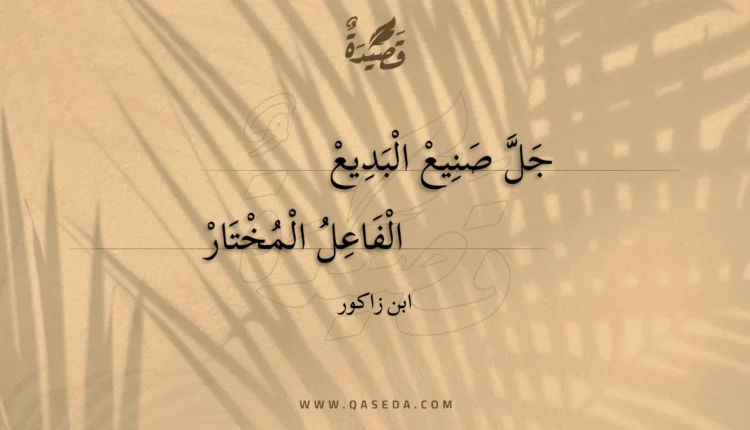 قَصِيْدَةٌ
جَلَّ صَنِيعْ الْبَدِيعْ
الْفَاعِلُ الْمُخْتَارْ
ابن زاكور
WWW.QASEDA.COM